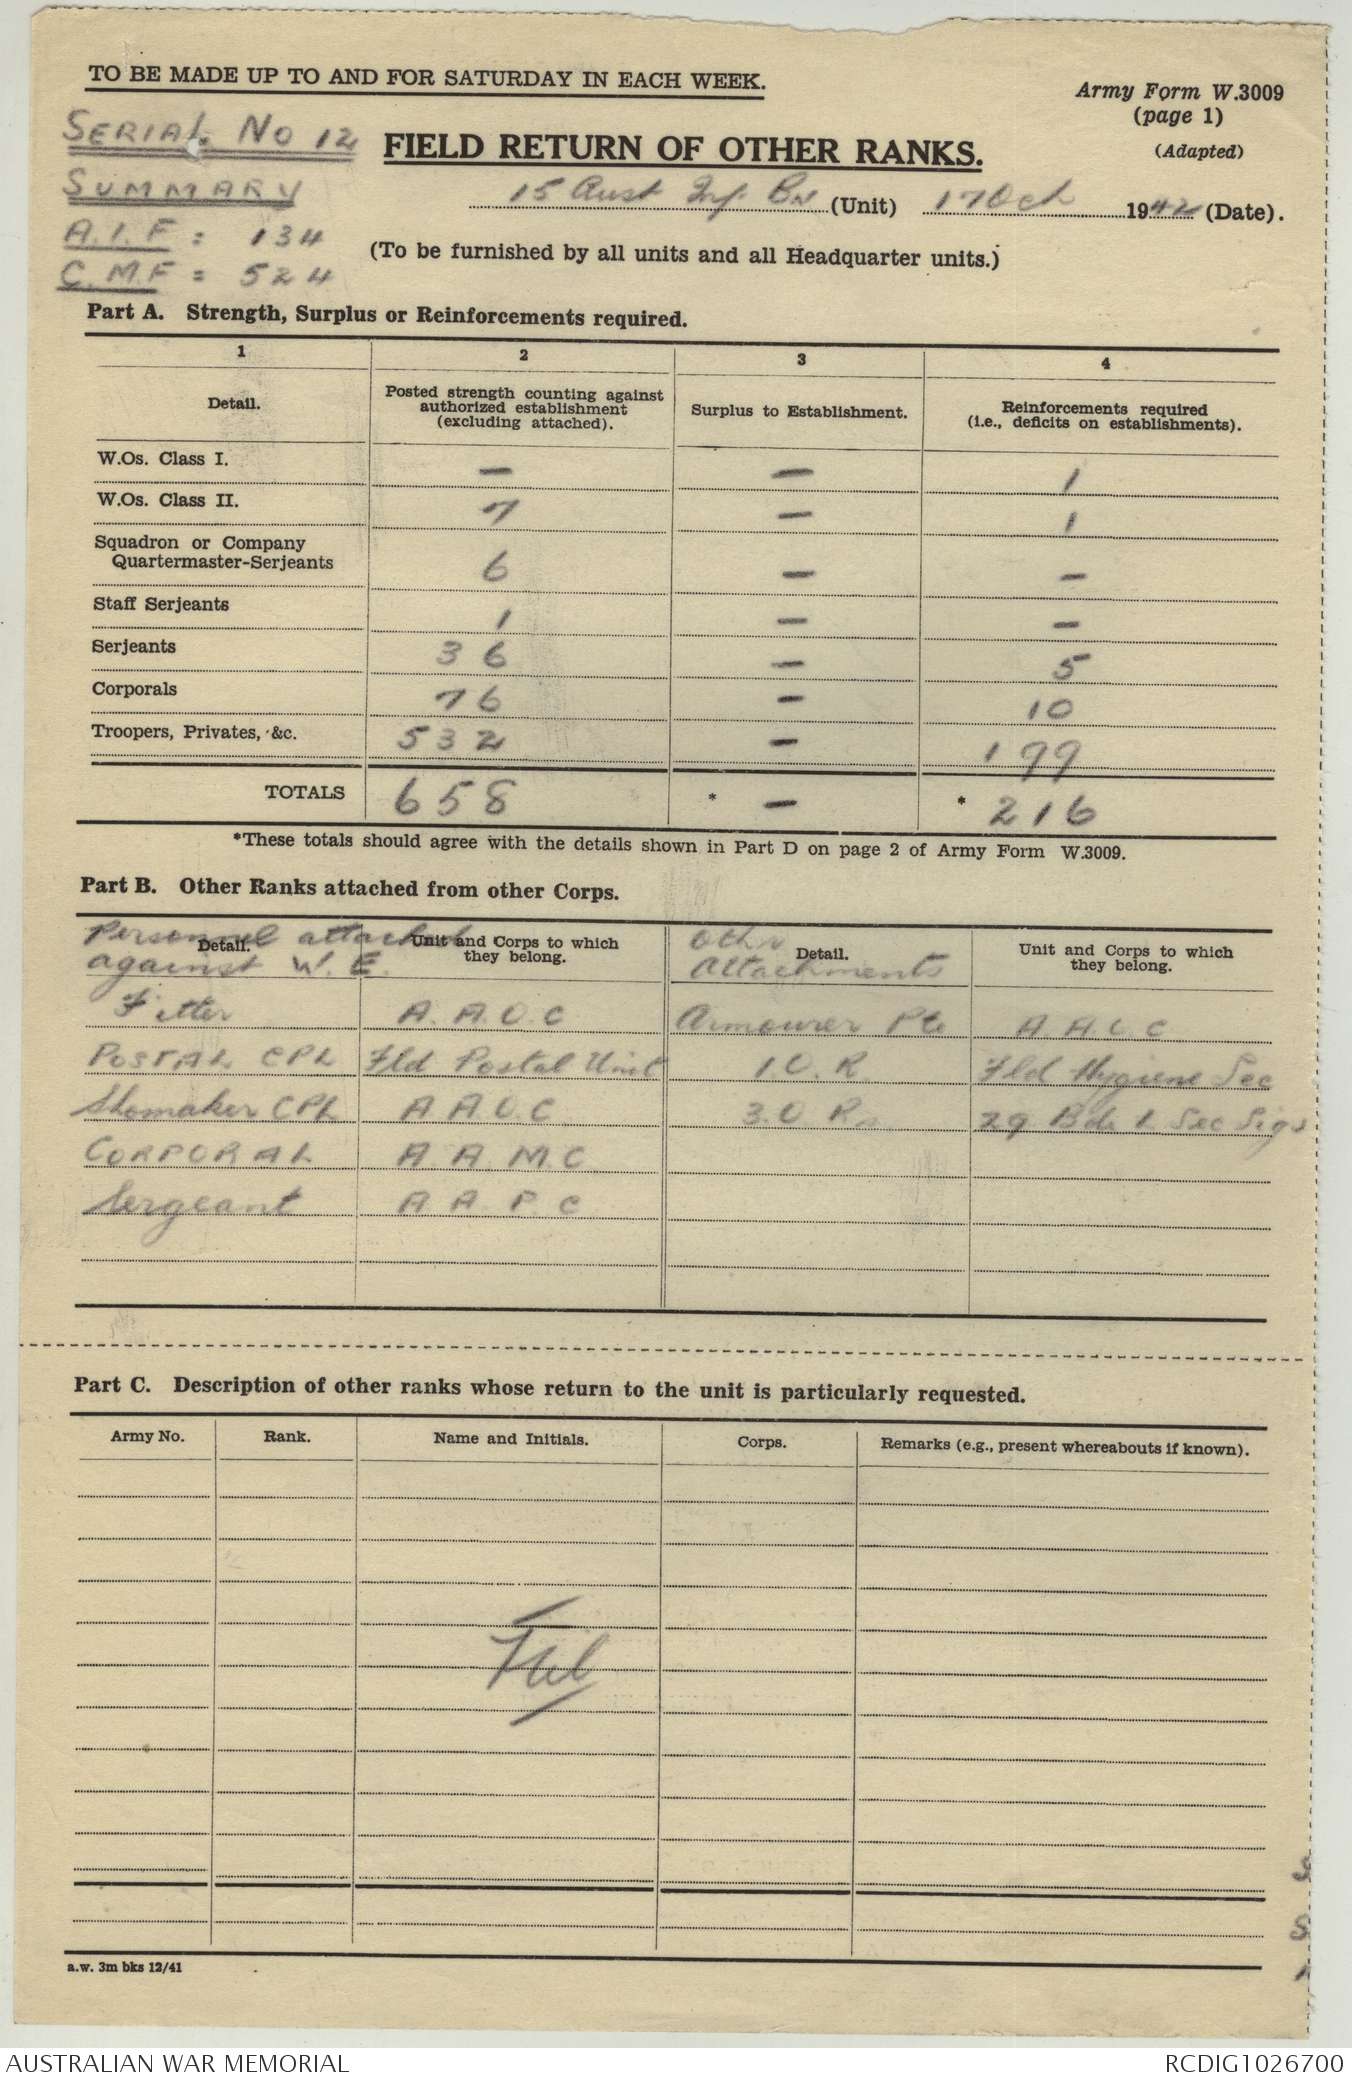 TO BE MADE UP TO AND FOR SATURDAY IN EACH WEEK.
Army Form W.3009
(page 1)
(Adapted)
SERIAL No 12
FIELD RETURN OF OTHER RANKS.
SUMMARY
15 Aust Inf. Bn (Unit) 17 Oct 1942 (Date).
A.I.F = 134
C.M.F = 524
(To be furnished by all units and all Headquarter units.)
Part A. Strength, Surplus or Reinforcements required.
1 2 3 4
Detail. Posted strength counting against authorized establishment (excluding attached). Surplus to Establishment. Reinforcements required (i.e., deficits on establishments).
W.Os. Class I. — — 1
W.Os. Class II. 7 — 1
Squadron or Company
Quartermaster-Serjeants 6 — —
Staff Serjeants 1 — —
Serjeants 36 — 5
Corporals 76 — 10
Troopers, Privates, &c. 532 — 199
TOTALS 658 * — * 216
*These totals should agree with the details shown in Part D on page 2 of Army Form W.3009.
Part B. Other Ranks attached from other Corps.
Detail. Unit and Corps to which they belong. Detail. Unit and Corps to which they belong.
Personnel attached against W.E. Other Attachments
Fitter A.A.O.C Armourer Pte A.A.O.C
POSTAL CPL Fld Postal Unit 1.O.R. Fld Hygiene Sec
Shomaker CPL A.A.O.C. 3.O.Rs 29 Bde L Sec Sigs
CORPORAL A.A.M.C
Sergeant A.A.P.C
Part C. Description of other ranks whose return to the unit is particularly requested.
Army No. Rank. Name and Initials. Corps. Remarks (e.g., present whereabouts if known).
Nil
a.w. 3m bks 12/41
AUSTRALIAN WAR MEMORIAL
RCDIG1026700